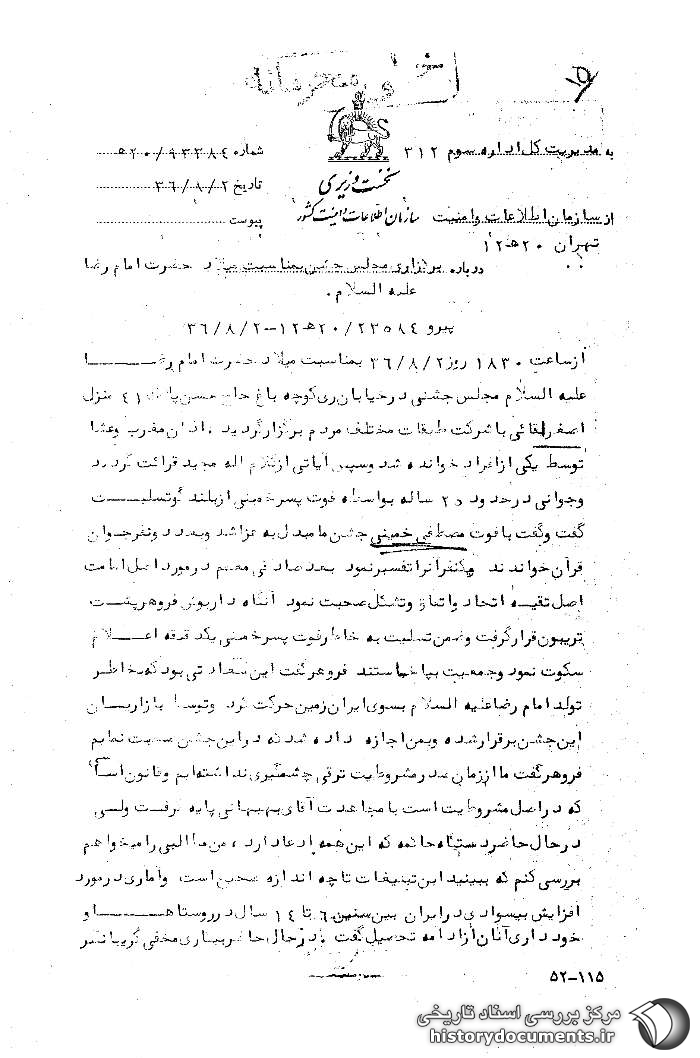 خیلی محرمانه
به مدیریت کل اداره سوم ۳۱۲
شماره ۵۲۰/۹۳۳۸۴
نخست وزیری
تاریخ ۳۶/۸/۲
از سازمان اطلاعات و امنیت
سازمان اطلاعات و امنیت کشور
پیوست
تهران ۲۰ھ۱۲
درباره برگزاری مجلس جشن بمناسبت میلاد حضرت امام رضا
علیه السلام .
پیرو ۲۰/۲۳۵۸۴ھ۱۲-۳۶/۸/۲
از ساعت ۱۸۳۰ روز ۳۶/۸/۲ بمناسبت میلاد حضرت امام رضا
علیه السلام مجلس جشنی در خیابان ری کوچه باغ حاج حسن پلاک ۴۱ منزل
اصغر لقائی با شرکت طبقات مختلف مردم برگزار گردید ، اذان مغرب و عشا
توسط یکی از افراد خوانده شد و سپس آیاتی از کلام اله مجید قرائت گردید
و جوانی در حدود ۲۵ ساله بواسطه فوت پسر خمینی از بلندگو تسلیت
گفت و گفت با فوت مصطفی خمینی جشن ما مبدل به عزا شد و بعد دو نفر جوان
قرآن خواندند و یکنفر آنرا تفسیر نمود بعد صادقی مقیم در مورد اصل امامت
اصل تقیه اتحاد و اتفاق و تشکل صحبت نمود آنگاه داریوش فروهر پشت
تریبون قرار گرفت و ضمن تسلیت به خاطر فوت پسر خمینی یکدقیقه اعلام
سکوت نمود و جمعیت بپا خاستند فروهر گفت این سعادتی بود که بخاطر
تولد امام رضا علیه السلام بسوی ایران زمین حرکت کرد و توسط بازاریان
این جشن برقرار شده و بمن اجازه داده شد که در این جشن صحبت نمایم
فروهر گفت ما از زمان صدر مشروطیت ترقی چشمگیری نداشته‌ایم و قانون اساسی
که در اصل مشروطیت است با مجاهدت آقای بهبهانی پایه گرفت ولی
در حال حاضر دستگاه حاکمه که این همه ادعا دارد ، من مطالبی را میخواهم
بررسی کنم که ببینید این تبلیغات تا چه اندازه صحیح است و آماری در مورد
افزایش بیسوادی در ایران بین سنین ۶ تا ۱۴ سال در روستاها و
خودداری آنان از ادامه تحصیل گفت در حال حاضر بیکاری مخفی گریبانگیر
۵۲-۱۱۵
مرکز بررسی اسناد تاریخی
historydocuments.ir